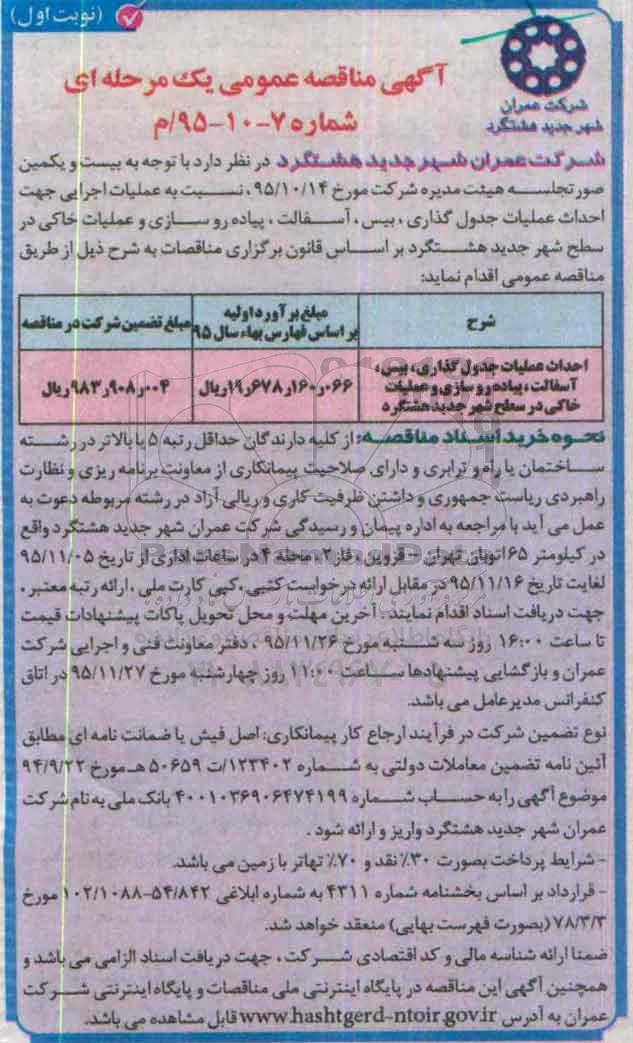 (نوبت اول)
شرکت عمران
شهر جدید هشتگرد
آگهی مناقصه عمومی یک مرحله ای
شماره ۷-۱۰-۹۵/م
شرکت عمران شهر جدید هشتگرد در نظر دارد با توجه به بیست و یکمین
صورتجلسه هیئت مدیره شرکت مورخ ۹۵/۱۰/۱۴، نسبت به عملیات اجرایی جهت
احداث عملیات جدول گذاری، بیس، آسفالت، پیاده رو سازی و عملیات خاکی در
سطح شهر جدید هشتگرد بر اساس قانون برگزاری مناقصات به شرح ذیل از طریق
مناقصه عمومی اقدام نماید:
شرح
مبلغ برآورد اولیه
بر اساس فهارس بهاء سال ۹۵
مبلغ تضمین شرکت در مناقصه
احداث عملیات جدول گذاری، بیس،
آسفالت، پیاده رو سازی و عملیات
خاکی در سطح شهر جدید هشتگرد
۱۹ر۶۷۸ر۱۶۰ر۰۶۶ ریال
۹۸۳ر۹۰۸ر۰۰۴ ریال
نحوه خرید اسناد مناقصه: از کلیه دارندگان حداقل رتبه ۵ یا بالاتر در رشته
ساختمان یا راه و ترابری و دارای صلاحیت پیمانکاری از معاونت برنامه ریزی و نظارت
راهبردی ریاست جمهوری و داشتن ظرفیت کاری و ریالی آزاد در رشته مربوطه دعوت به
عمل می آید با مراجعه به اداره پیمان و رسیدگی شرکت عمران شهر جدید هشتگرد واقع
در کیلومتر ۶۵ اتوبان تهران - قزوین، فاز ۲، محله ۴ در ساعات اداری از تاریخ ۹۵/۱۱/۰۵
لغایت تاریخ ۹۵/۱۱/۱۶ در مقابل ارائه درخواست کتبی، کپی کارت ملی، ارائه رتبه معتبر،
جهت دریافت اسناد اقدام نمایند. آخرین مهلت و محل تحویل پاکات پیشنهادات قیمت
تا ساعت ۱۶:۰۰ روز سه شنبه مورخ ۹۵/۱۱/۲۶، دفتر معاونت فنی و اجرایی شرکت
عمران و بازگشایی پیشنهادها ساعت ۱۱:۰۰ روز چهارشنبه مورخ ۹۵/۱۱/۲۷ در اتاق
کنفرانس مدیرعامل می باشد.
نوع تضمین شرکت در فرآیند ارجاع کار پیمانکاری: اصل فیش یا ضمانت نامه ای مطابق
آئین نامه تضمین معاملات دولتی به شماره ۱۲۳۴۰۲/ت ۵۰۶۵۹ هـ مورخ ۹۴/۹/۲۲
موضوع آگهی را به حساب شماره ۴۰۰۱۰۳۶۹۰۶۴۷۴۱۹۹ بانک ملی به نام شرکت
عمران شهر جدید هشتگرد واریز و ارائه شود.
- شرایط پرداخت بصورت ۳۰٪ نقد و ۷۰٪ تهاتر با زمین می باشد.
- قرارداد بر اساس بخشنامه شماره ۴۳۱۱ به شماره ابلاغی ۵۴/۸۴۲-۱۰۲/۱۰۸۸ مورخ
۷۸/۳/۳ (بصورت فهرست بهایی) منعقد خواهد شد.
ضمنا ارائه شناسه مالی و کد اقتصادی شرکت، جهت دریافت اسناد الزامی می باشد و
همچنین آگهی این مناقصه در پایگاه اینترنتی ملی مناقصات و پایگاه اینترنتی شرکت
عمران به آدرس www.hashtgerd-ntoir.gov.ir قابل مشاهده می باشد.